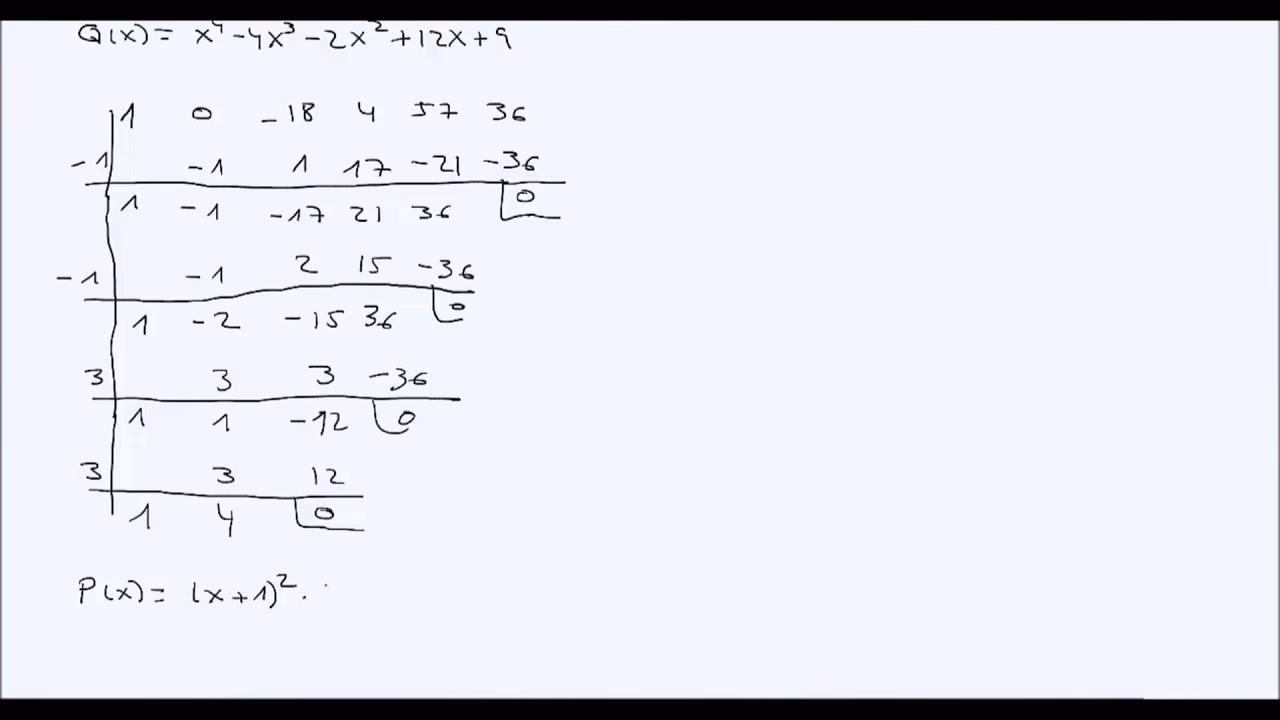 Q(x) = x⁴ - 4x³ - 2x² + 12x + 9
1 0 -18 4 57 36
-1 -1 1 17 -21 -36
1 -1 -17 21 36 0
-1 -1 2 15 -36
1 -2 -15 36 0
3 3 3 -36
1 1 -12 0
3 3 12
1 4 0
P(x) = (x+1)² ·